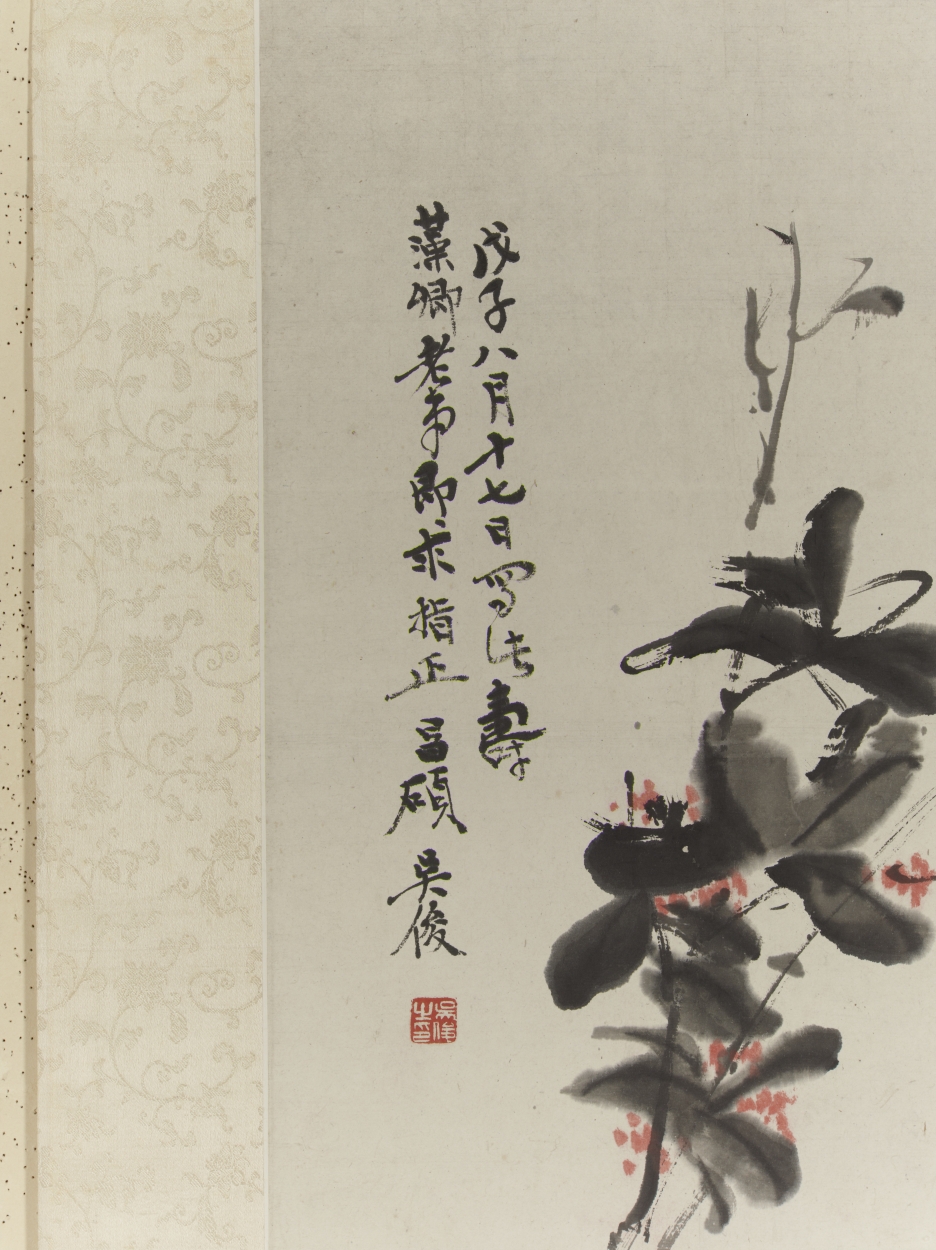 戊子八月十七日寫壽
藻卿老弟即求指正 昌碩 吳俊
吳俊之印